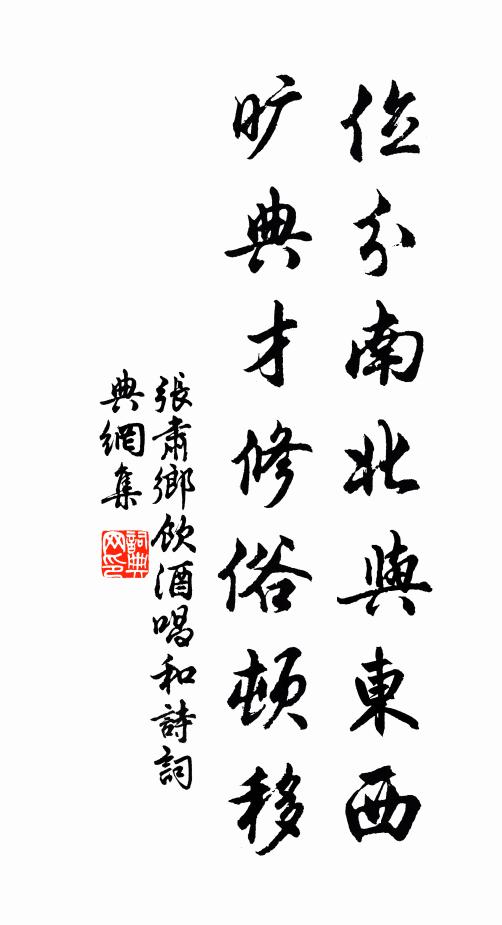 位分南北與東西
旷典才修俗頓移
張肅鄉飲酒唱和詩詞
典網集
詞典
网印